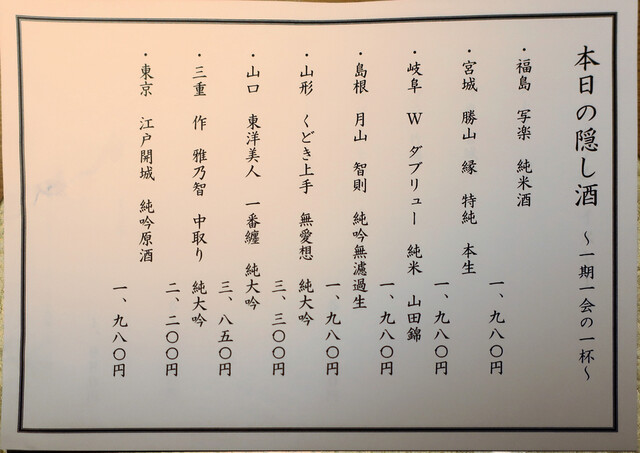 本日の隠し酒 ～一期一会の一杯～
・福島 写楽 純米酒
一、九八〇円
・宮城 勝山 縁 特純 本生
一、九八〇円
・岐阜 W ダブリュー 純米 山田錦
一、九八〇円
・島根 月山 智則 純吟無濾過生
一、九八〇円
・山形 くどき上手 無愛想 純大吟
三、三〇〇円
・山口 東洋美人 一番纏 純大吟
三、八五〇円
・三重 作 雅乃智 中取り 純大吟
二、二〇〇円
・東京 江戸開城 純吟原酒
一、九八〇円